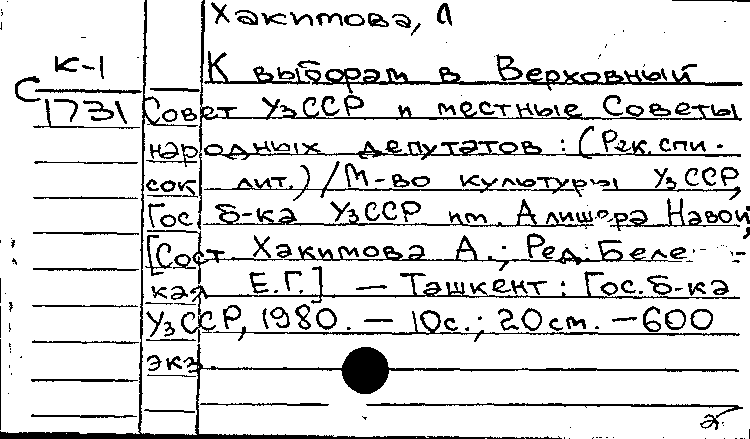 Хакимова,
К-1
К выборам в Верховный
С 1731
Совет УзССР и местные Советы
народных депутатов : (Рек. спи-
сок лит.) / М-во культуры УзССР,
Гос. б-ка УзССР им. Алишера Навои;
[Сост. Хакимова А.; Ред.
кая Е.Г.] — Ташкент : Гос. б-ка
УзССР, 1980. — 10с.; 20см. — 600
экз.